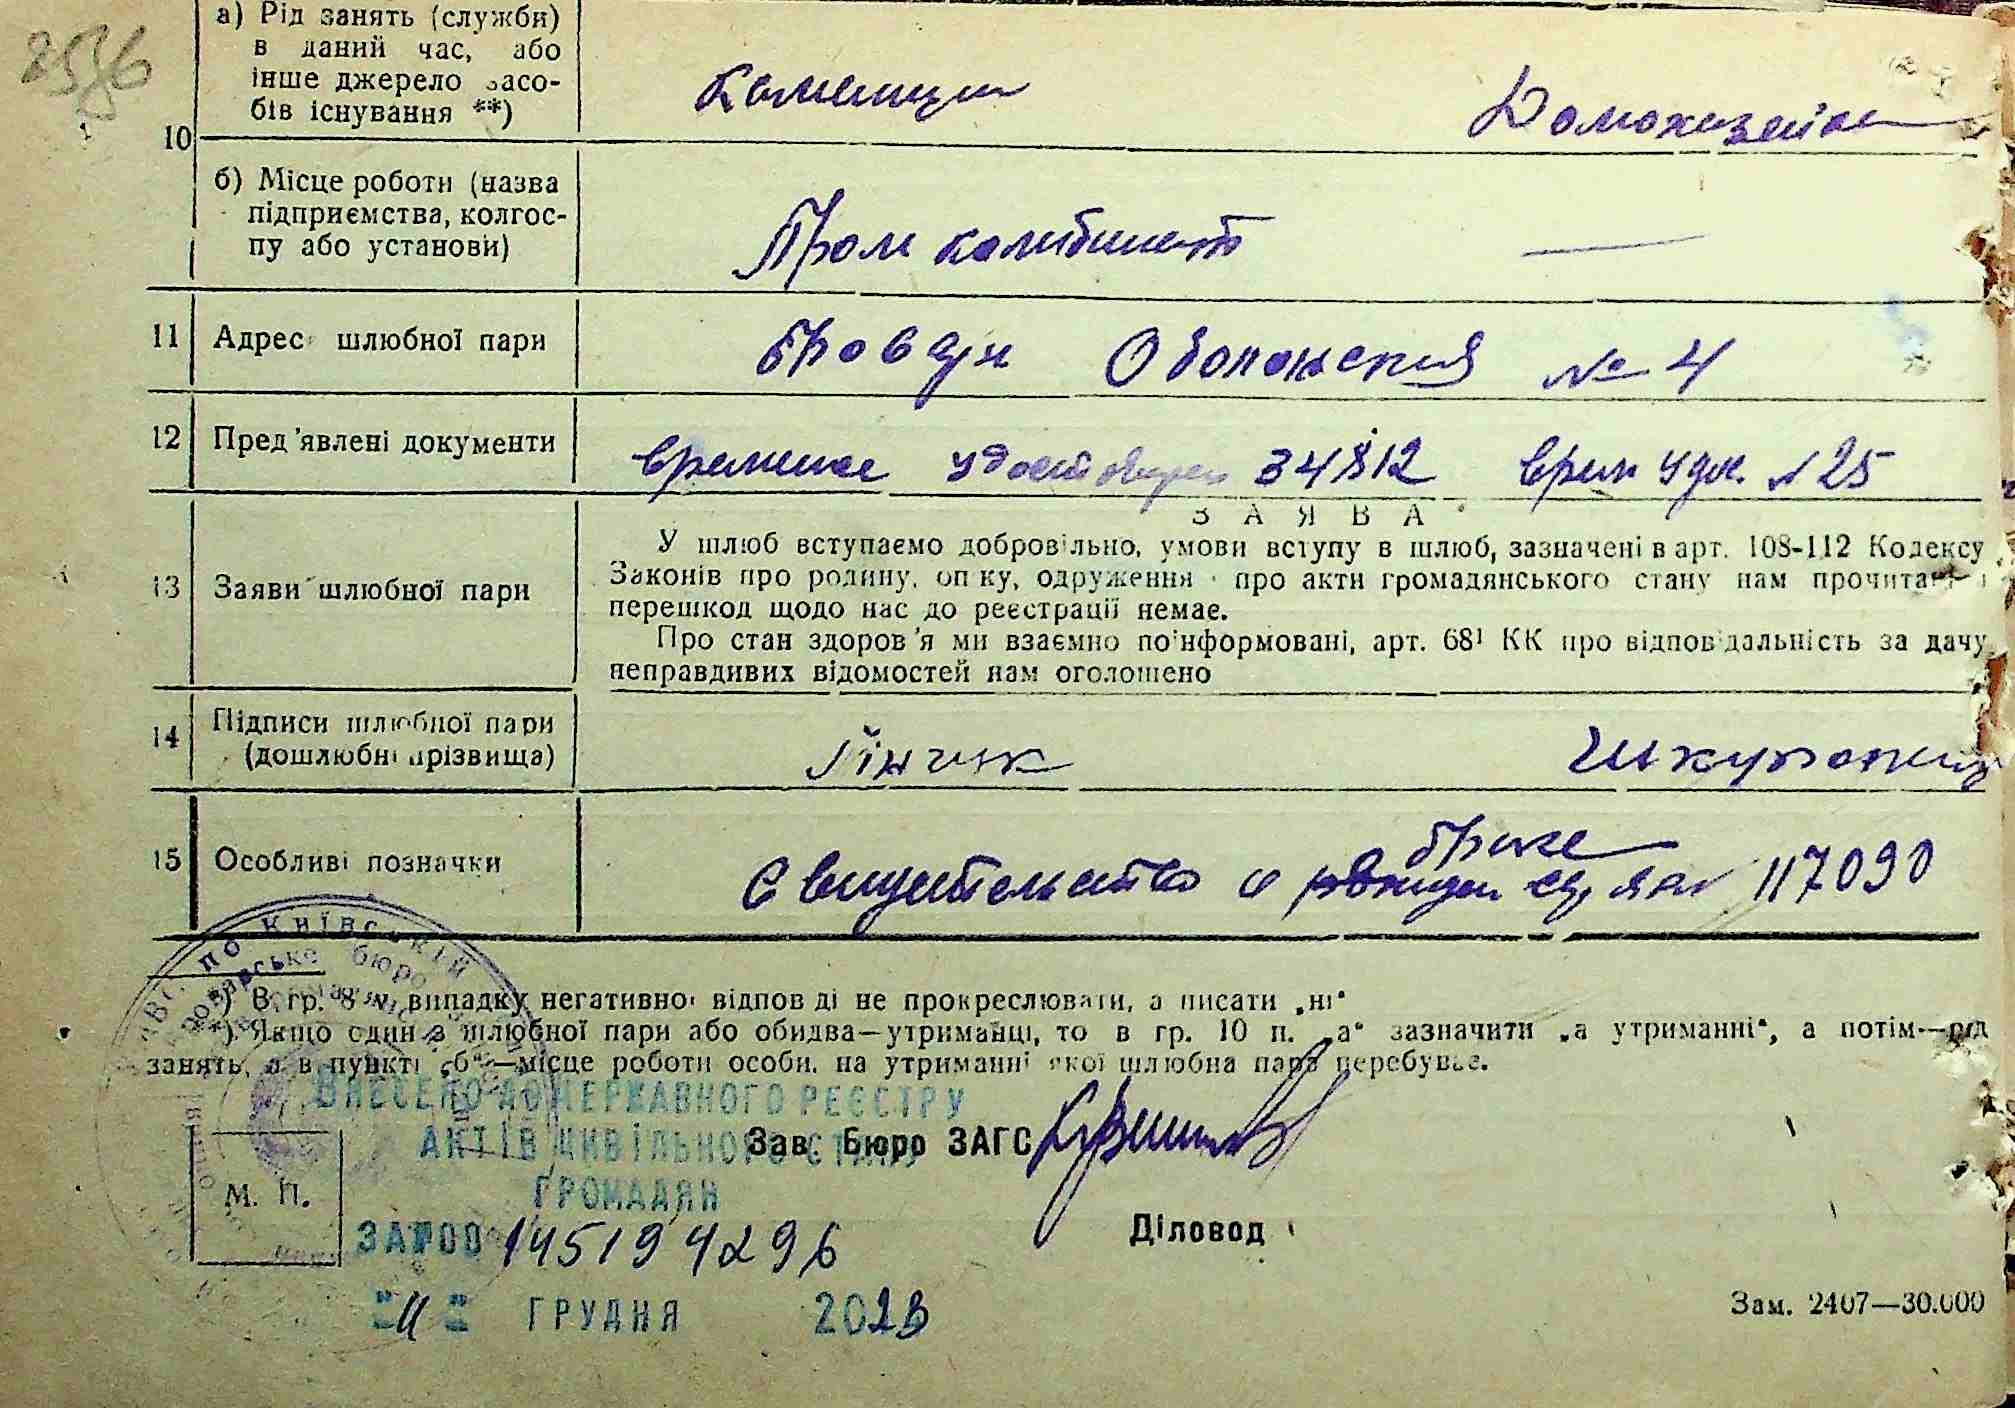 2556
а) Рід занять (служби)
в даний час, або
інше джерело засо-
бів існування **)
Каменщик
Домохазяйка
10
б) Місце роботи (назва
підприємства, колгос-
пу або установи)
Пром комбинат —
11 Адрес шлюбної пари
Бровари Оболонская № 4
12 Пред'явлені документи
временое удостоверен 34812 врем удос. № 25
ЗАЯВА
У шлюб вступаємо добровільно, умови вступу в шлюб, зазначені в арт. 108-112 Кодексу
Законів про родину, опіку, одруження і про акти громадянського стану нам прочитані і
перешкод щодо нас до реєстрації немає.
13 Заяви шлюбної пари
Про стан здоров'я ми взаємно поінформовані, арт. 68¹ КК про відповідальність за дачу
неправдивих відомостей нам оголошено
14 Підписи шлюбної пари
(дошлюбні прізвища)
Лінчик
15 Особливі позначки
браке
Свидетельство о рождении 117090
*) В гр. 8 у випадку негативної відповіді не прокреслювати, а писати „ні"
**) Якщо один з шлюбної пари або обидва—утриманці, то в гр. 10 п. „а" зазначити „а утриманні", а потім—рід
занять, а в пункті „б"—місце роботи особи, на утриманні якої шлюбна пара перебуває.
ВНЕСЕНО ДО ДЕРЖАВНОГО РЕЄСТРУ
АКТІВ ЦИВІЛЬНОГО СТАНУ
ГРОМАДЯН
Зав. Бюро ЗАГС
М. П.
ЗА №00 145194296
Діловод
"11" ГРУДНЯ 2023
Зам. 2407—30.000